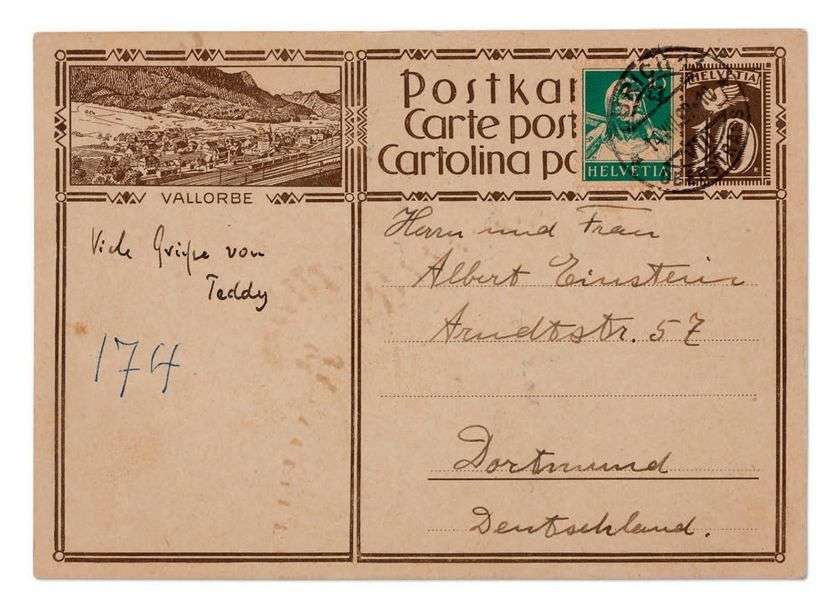 Postkar
Carte post
Cartolina po
HELVETIA
HELVETIA
10
VALLORBE
Herrn und Frau
Albert Einstein
Arndtstr. 57
Dortmund
Deutschland.
Viele Grüße von
Teddy
174